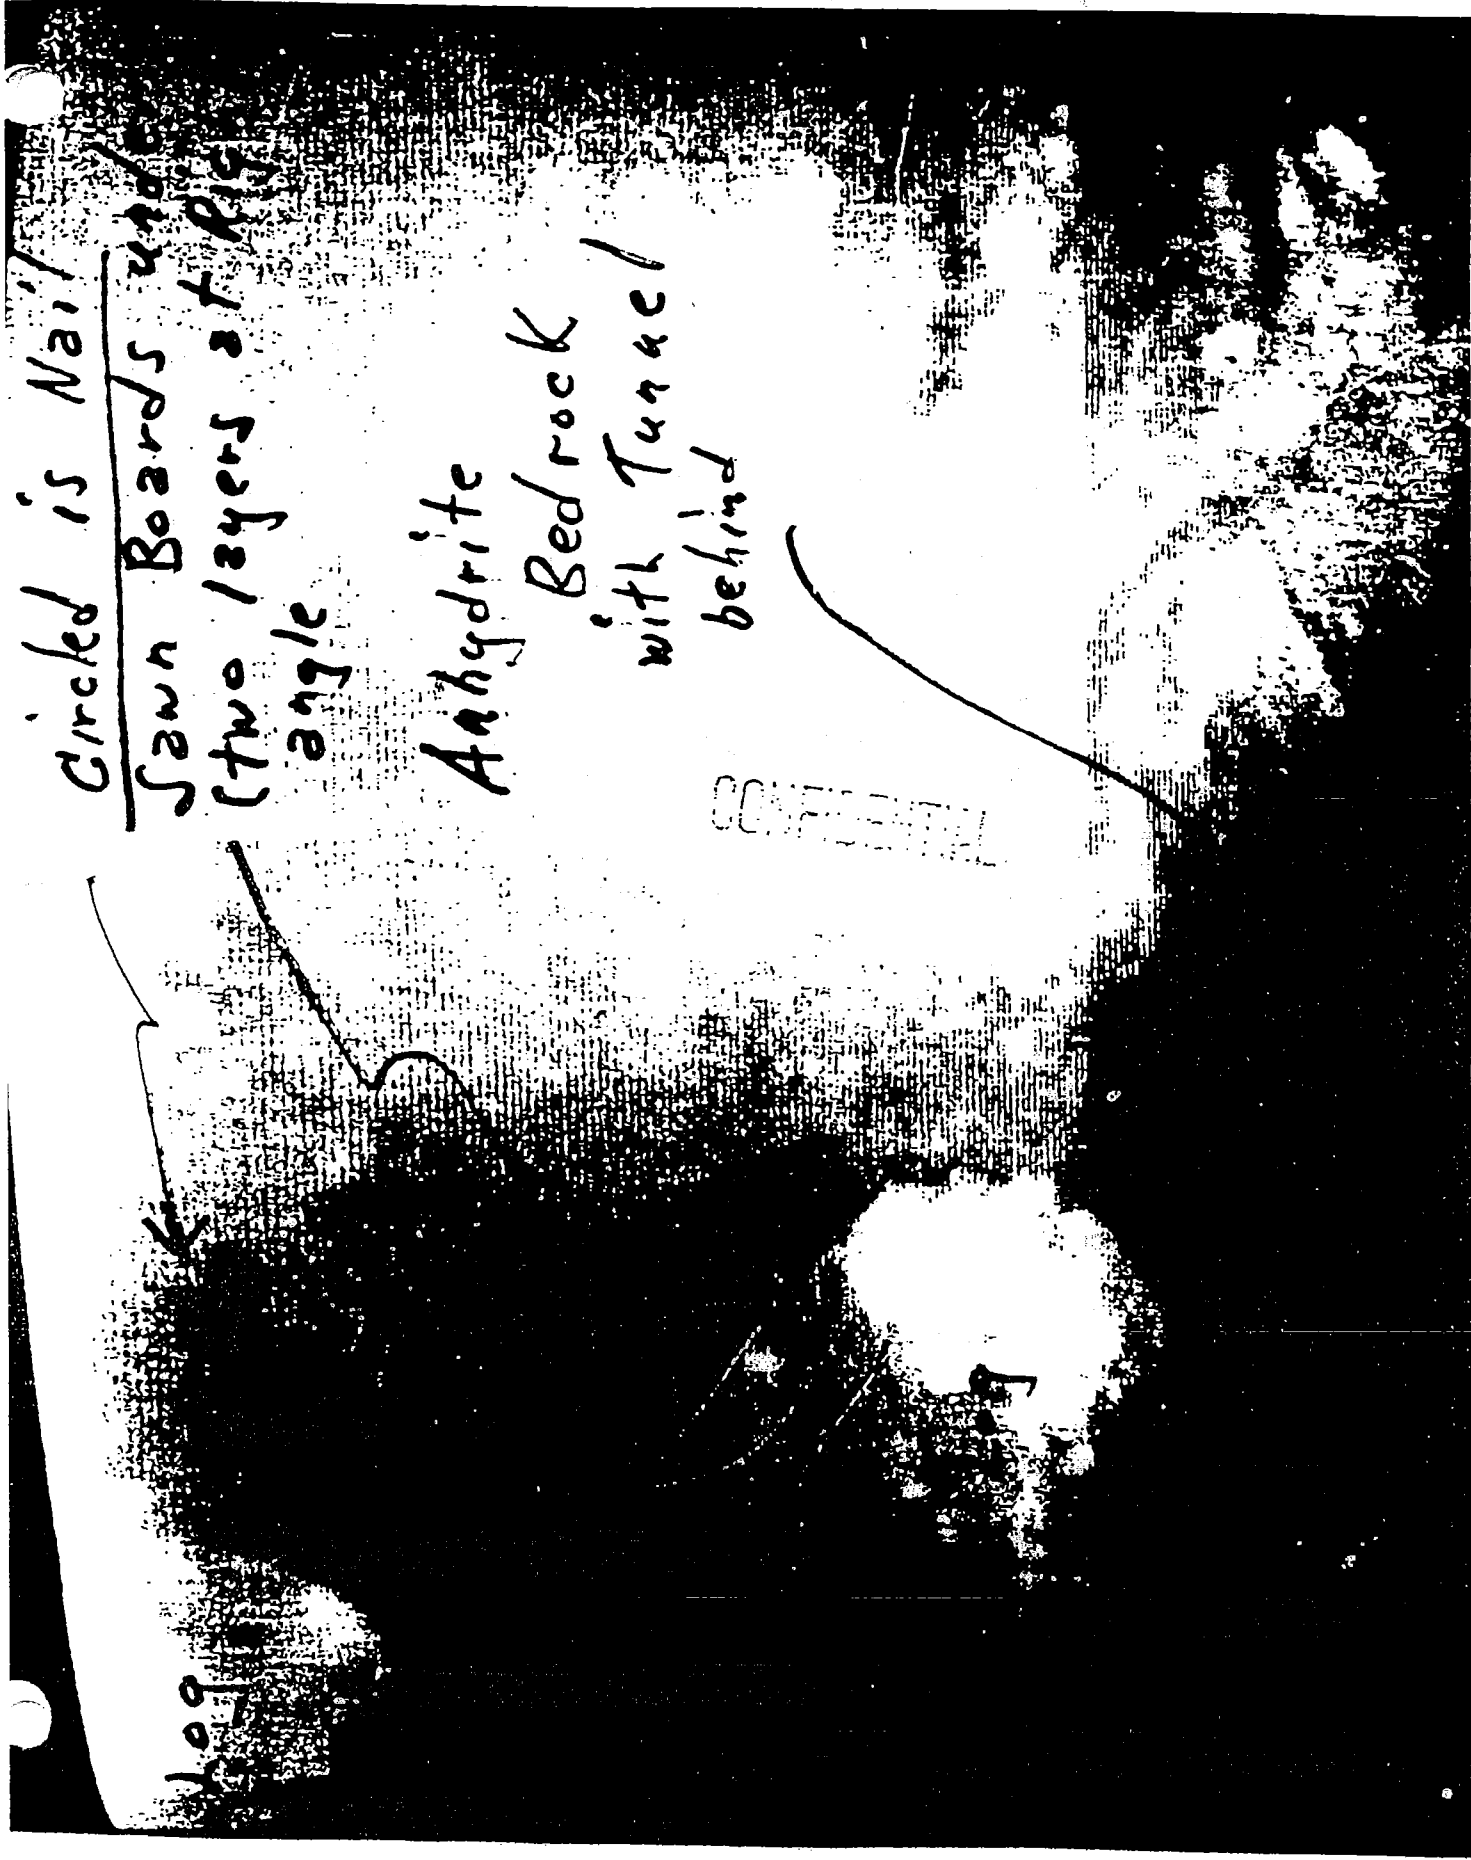 Circled is Nail
Sawn Boards und
(two layers at Rig
angle
Anhydrite
Bedrock
with Tunnel
behind
CONFIDENTIAL
Log